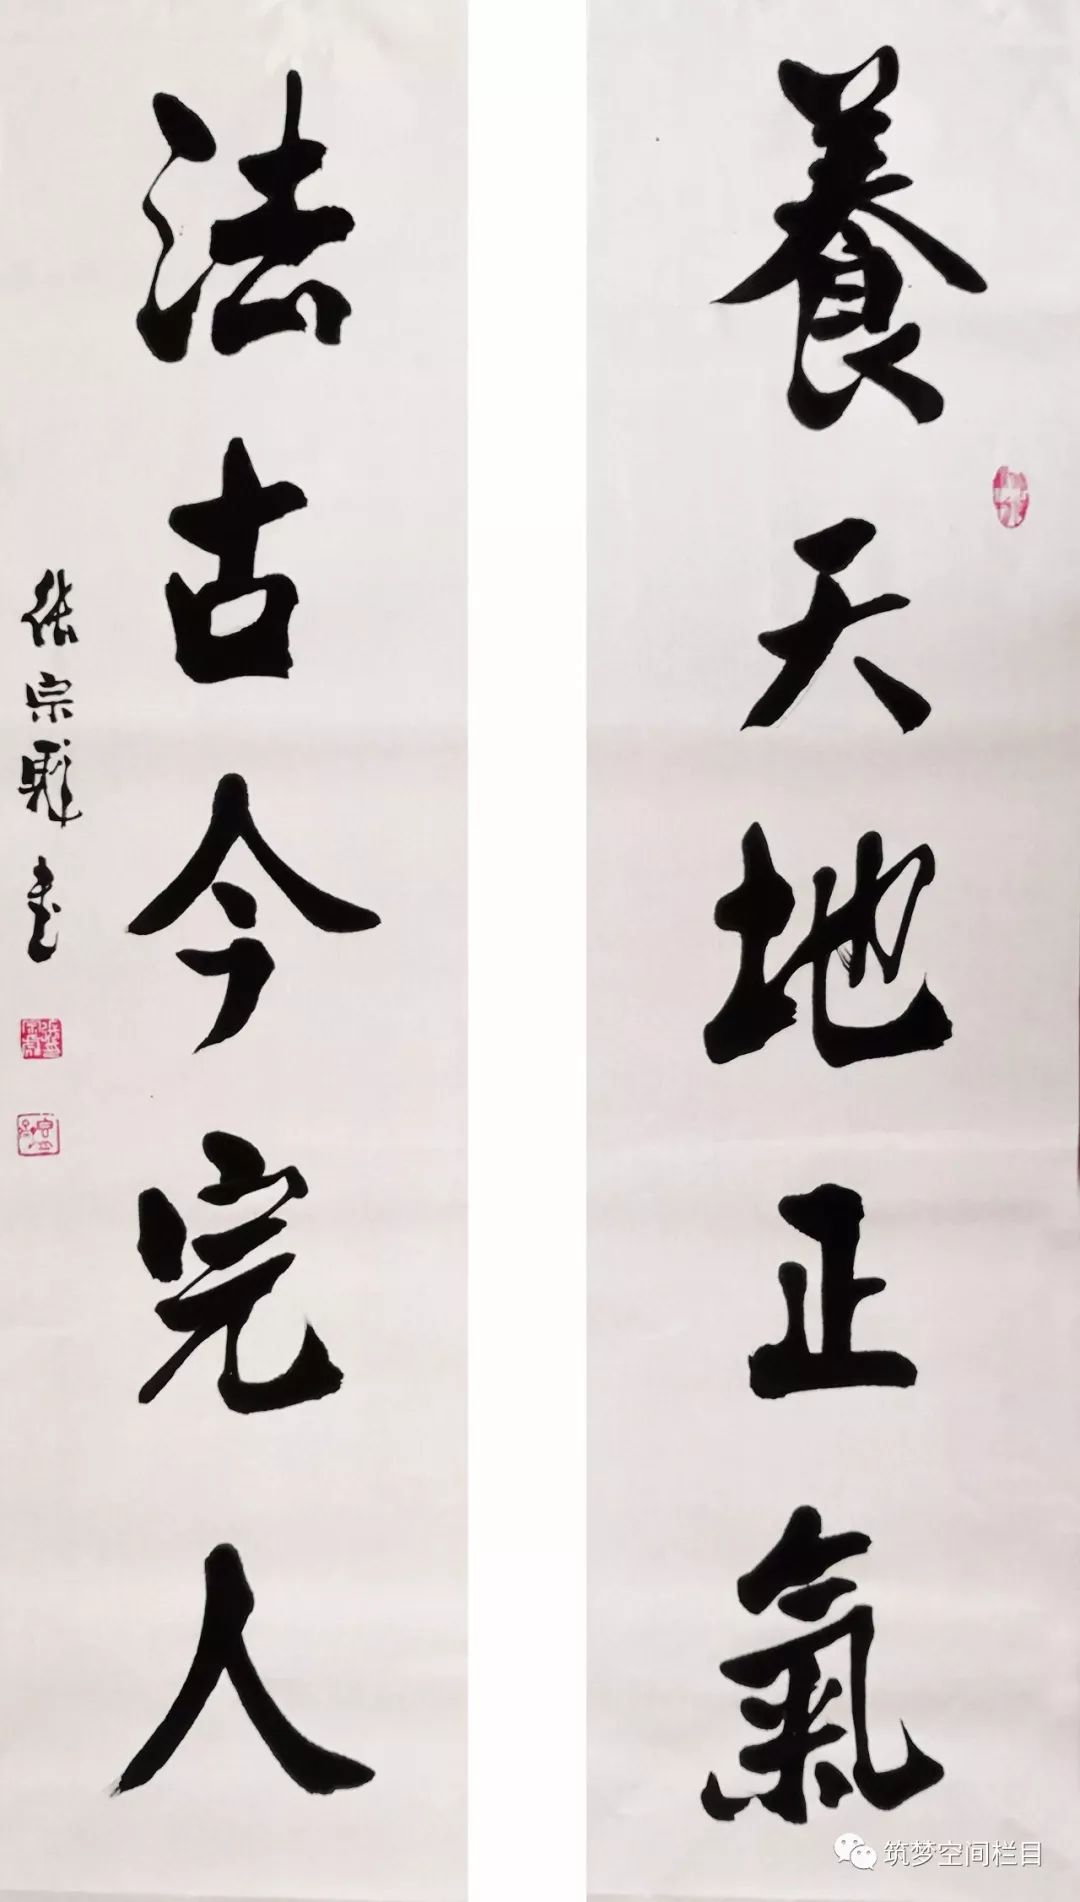 養天地正氣
法古今完人
張宗彪書
筑梦空间栏目